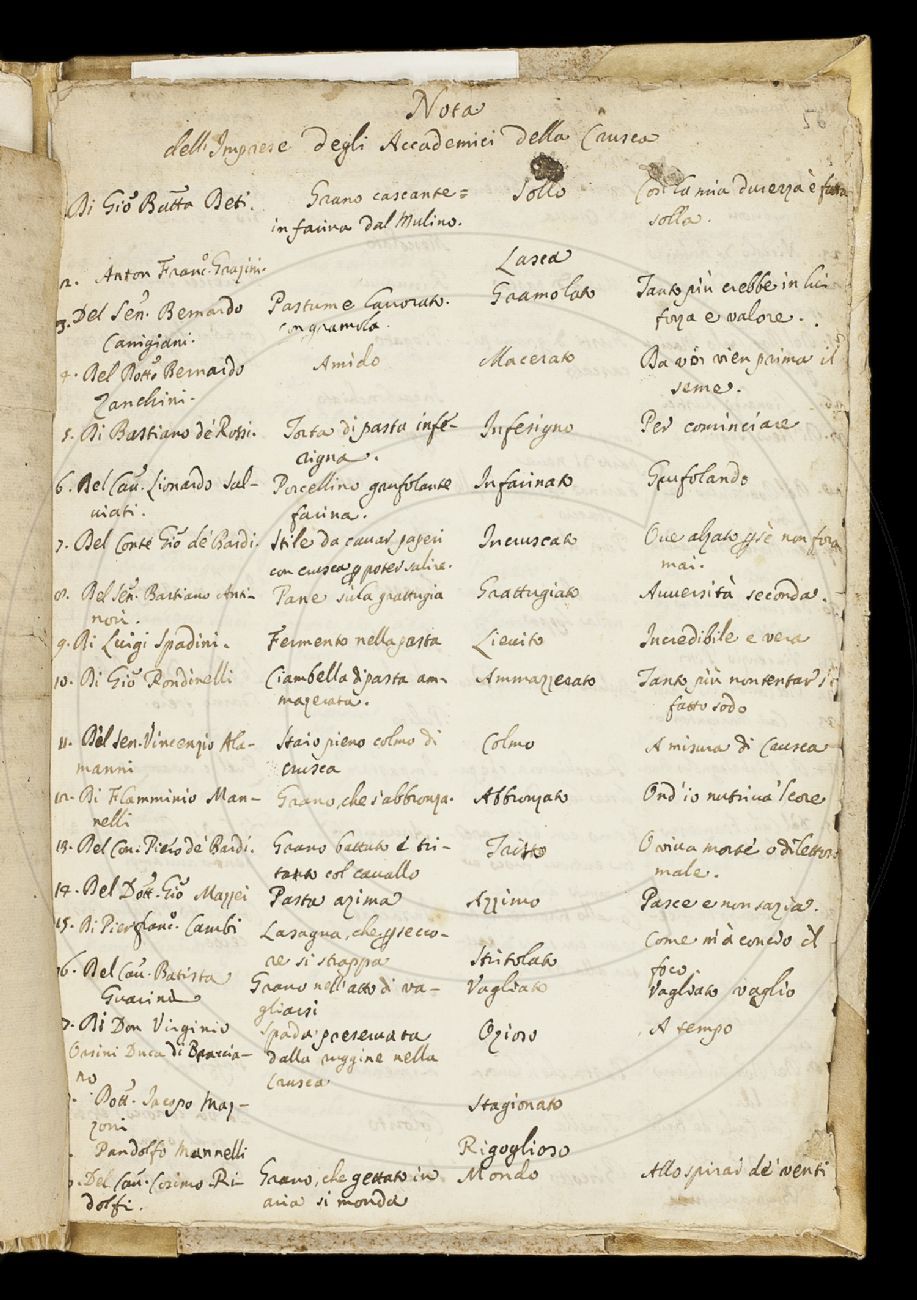 Nota
dell'Imprese degli Accademici della Crusca
Di Gio: Batta Deti. Grano cascante= Sollo Con la mia durezza è fatta
in farina dal Mulino. solla.
2. Anton Franc.º Grazini. Lasca
3. Del Sen. Bernardo Pastume lavorato. Gramolato Tanto più crebbe in lui
Canigiani. con gramola. forza e valore.
4. Del Dott. Bernardo Amido Macerato Da voi vien prima il
Zanchini. seme.
5. Di Bastiano de' Rossi. Torta di pasta infe- Inferigno Per cominciare
rigna.
6. Del Cav. Lionardo Sal- Porcellino grufolante Infarinato Grufolando
viati. farina.
7. Del Conte Gio: de' Bardi. Stile da cavar pozzi Incruscato Ove alzato p sè non fora
con crusca p poter salire. mai.
8. Del Sen. Bastiano Anti- Pane su la grattugia Grattugiato Avversità seconda.
nori.
9. Di Luigi Spadini. Fermento nella pasta Lievito Incredibile e vera
10. Di Gio: Rondinelli Ciambella di pasta am- Ammazzerato Tanto più
mazerata. fatto sodo
11. Del Sen. Vincenzio Ala- Staio pieno colmo di Colmo A misura di Crusca
manni crusca
12. Di Flamminio Man- Grano, che s'abbronza. Abbronzato Ond'io nutriva 'l core
nelli
13. Del Con. Piero de' Bardi. Grano battuto e tri- Trito O viva morte o dilettoso
tato col cavallo male.
14. Del Dott. Gio: Mazzei Pasta azima Azzimo Pasce e non sazia.
15. Di Pierfranc.º Cambi Lasagna, che p secco- Stritolato Come
re si strappa foco
16. Del Cav. Batista Grano nell'atto di va- Vagliato Vagliato vaglio
Guarini gliarsi
7. Di Don Virginio Spada preservata Ozioso A tempo
Orsini Duca di Braccia- dalla ruggine nella
no Crusca
Dott. Jacopo Maz- Stagionato
zoni
Pandolfo Mannelli Rigoglioso
Del Cav. Cosimo Ri- Grano, che gettato in Mondo Allo spirar de' venti
dolfi. aria si monda